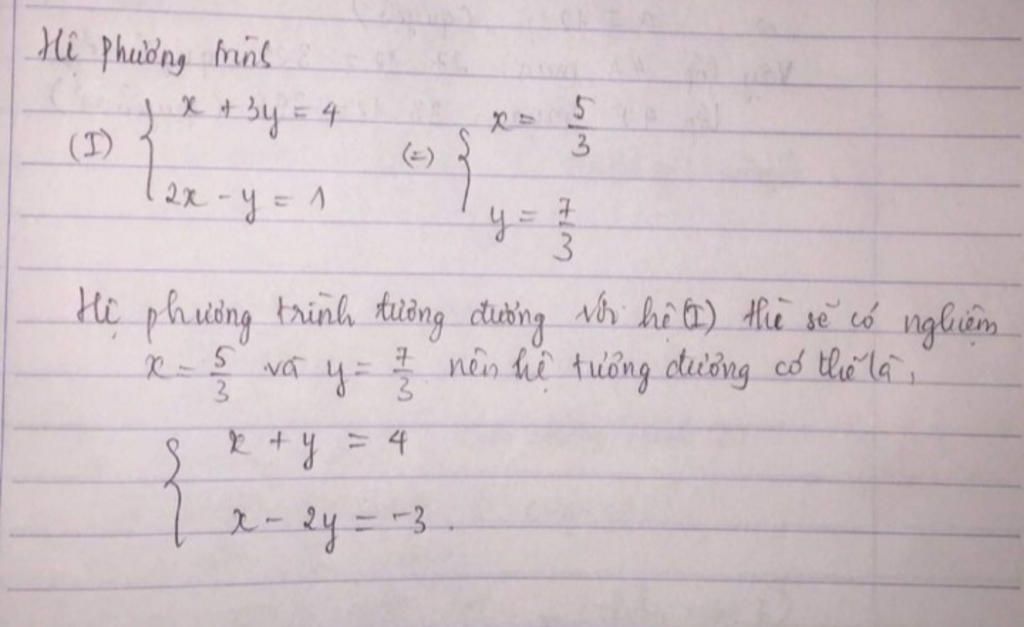 Hệ phương trình
(I) { x + 3y = 4 (=) { x = 5/3
2x - y = 1 y = 7/3
Hệ phương trình tương đương với hệ (I) thì sẽ có nghiệm
x = 5/3 và y = 7/3 nên hệ tương đương có thể là,
{ x + y = 4
x - 2y = -3.